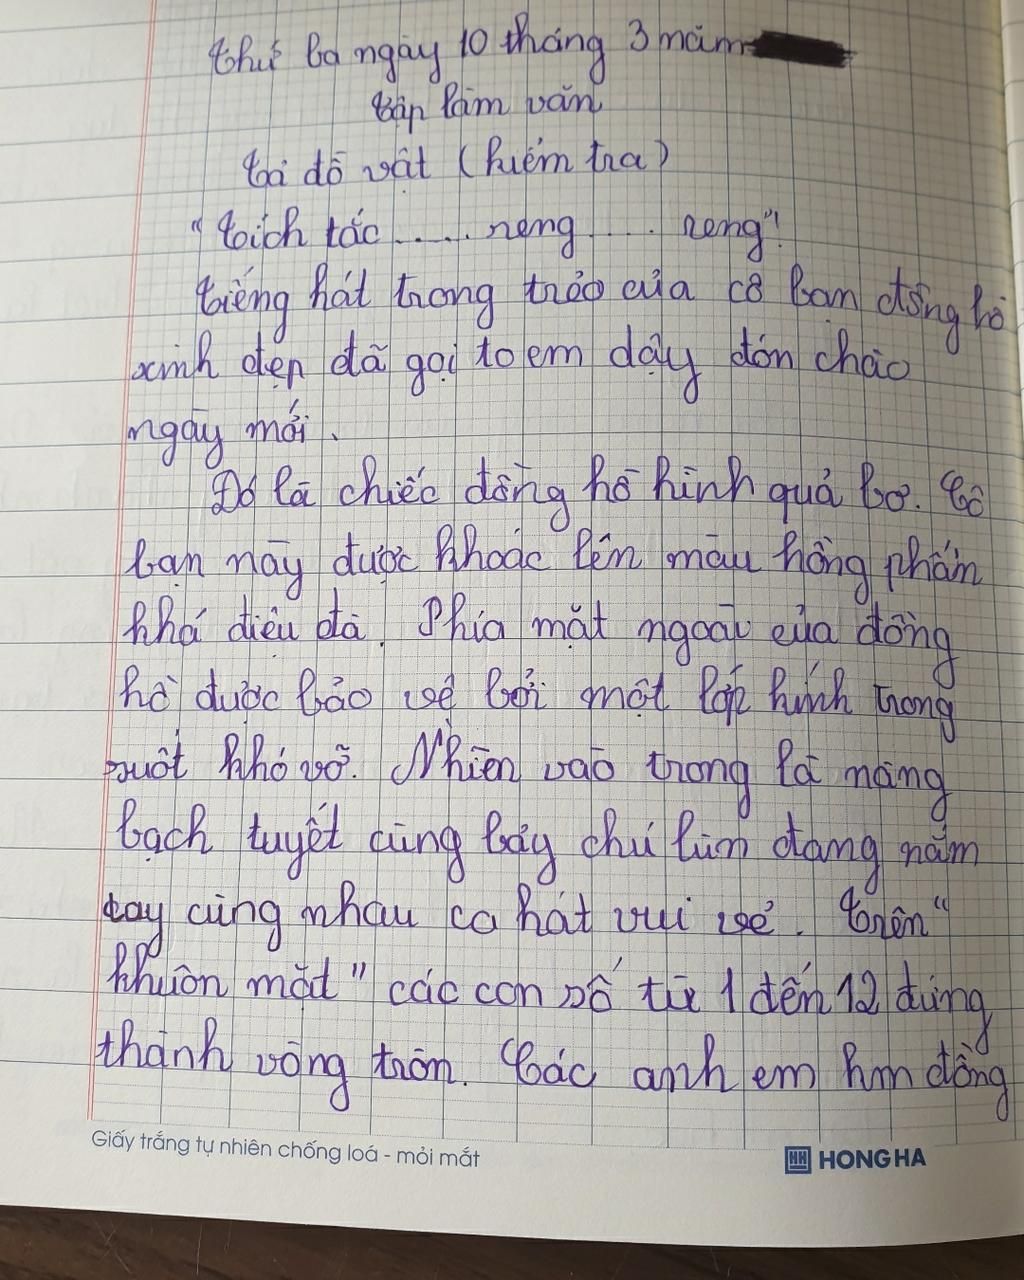 thứ ba ngày 10 tháng 3 năm
tập làm văn
tả đồ vật (kiểm tra)
"tích tắc ..... reng .... reng"!
tiếng hát trong trẻo của cô bạn đồng hồ
xinh đẹp đã gọi to em dậy đón chào
ngày mới.
Đó là chiếc đồng hồ hình quả bơ. Cô
bạn này được khoác lên màu hồng phấn
khá điệu đà. Phía mặt ngoài của đồng
hồ được bảo vệ bởi một lớp kính trong
suốt khó vỡ. Nhìn vào trong là nàng
bạch tuyết cùng bảy chú lùn đang nắm
tay cùng nhau ca hát vui vẻ. Trên "
khuôn mặt" các con số từ 1 đến 12 đứng
thành vòng tròn. Các anh em kim đồng
Giấy trắng tự nhiên chống loá - mỏi mắt
HH HONG HA